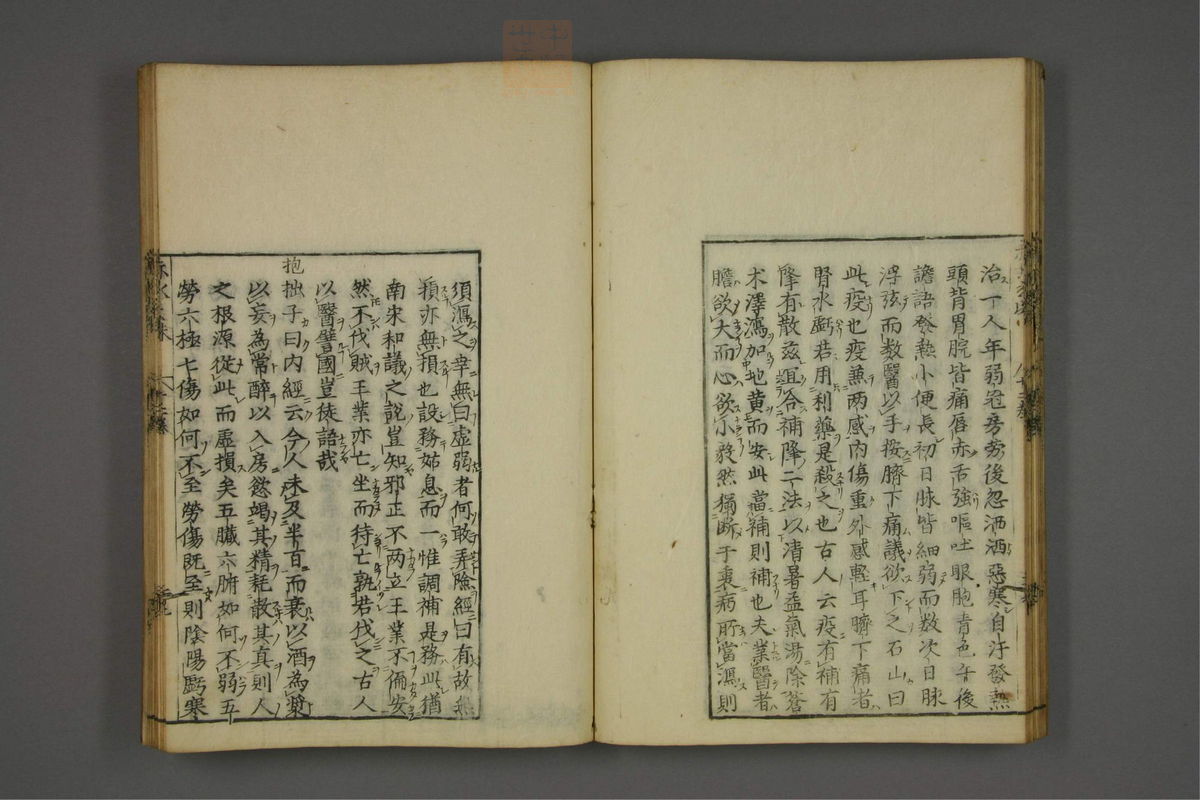 治一人年弱冠房労後忽洒洒惡寒自汗發熱
頭背胃脘皆痛唇赤舌強嘔吐眼胞青色午後
譫語發熱小便長初日脉皆細弱而数次日脉
浮弦而数醫以手按臍下痛議欲下之石山曰
此疫也疫兼两感内傷重外感輕耳臍下痛者
腎水虧若用利藥是殺之也古人云疫有補有
降有散兹宜合補降二法以清暑益氣湯除蒼
术澤瀉加地黄而安此當補則補也夫業醫者
膽欲大而心欲小毅然獨斷于衷病所當瀉則
須瀉之幸無曰虚弱者何敢弄險經曰有故無
損亦無損也設務姑息而一惟調補是務此猶
南宋和議之說豈知邪正不两立王業不偏安
然不伐賊王業亦亡坐而待亡孰若伐之古人
以醫譬國豈徒語哉
抱拙子曰内經云今人未及半百而衰以酒為漿
以妄為常醉以入房慾竭其精耗散其真則人
之根源從此而虚損矣五臟六腑如何不弱五
勞六極七傷如何不至勞傷既至則陰陽虧寒